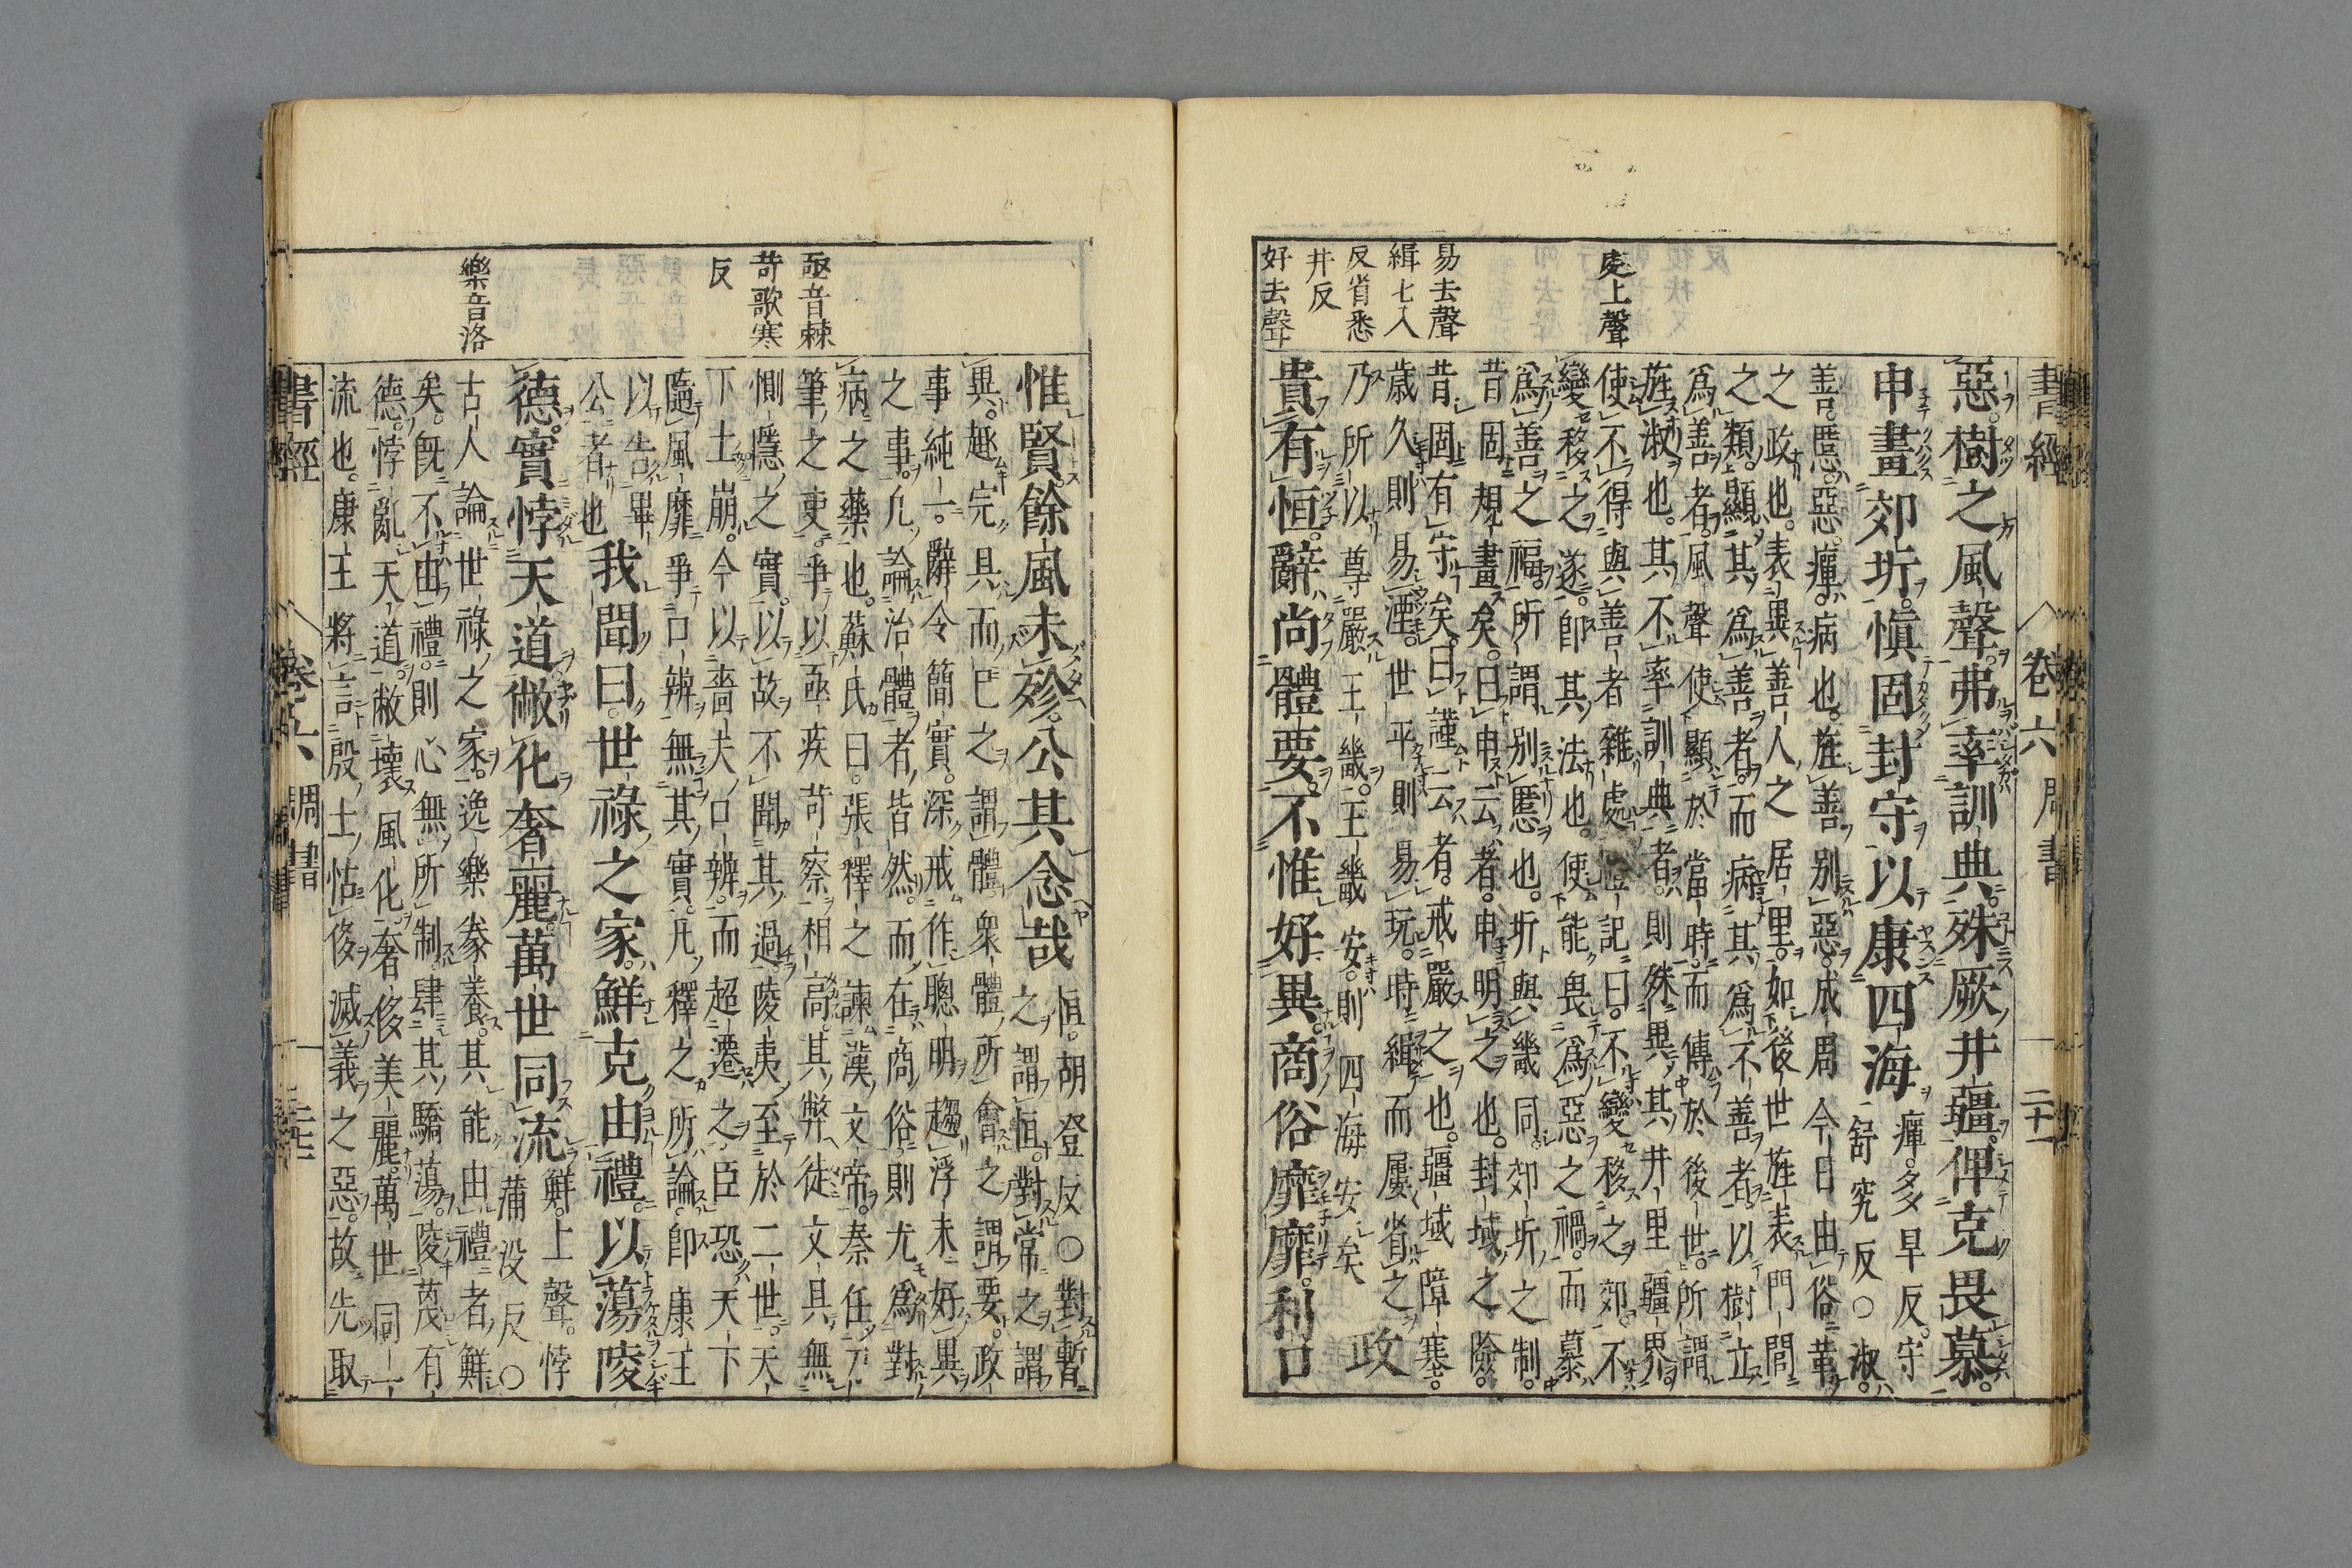 書經 卷六 周書 二十一
處上聲
易去聲
緝七入
反省悉
井反
好去聲
惡。樹之風聲。弗率訓典。殊厥井疆。俾克畏慕。
申畫郊圻。愼固封守。以康四海 癉。多旱反。守
舒究反○淑。
善。慝。惡。癉。病也。旌善别惡。成周今日由俗革
之政也。表異善人之居里。如後世旌表門閭
之類。顯其爲善者。而病其爲不善者。以樹立
爲善者。風聲使顯於當時。而傳於後世。所謂
旌淑也。其不率訓典者。則殊異其井里疆界。
使不得與善者雜處。禮記曰。不變移之郊。不
變移之遂。卽其法也。使能畏爲惡之禍。而慕
爲善之福。所謂别慝也。圻與畿同。郊圻之制。
昔固規畫矣。曰申云者。申明之也。封域之險。
昔固有守矣。曰謹云者。戒嚴之也。疆域障塞。
歲久則易湮。世平則易玩。時緝而屢省之
乃所以尊嚴王畿。王畿安。則四海安矣 政
貴有恒。辭尚體要。不惟好異。商俗靡靡。利口
亟音棘
苛歌寒
反
樂音洛
惟賢。餘風未殄。公其念哉 恒。胡登反○對暫
之謂恒。對常之謂
異。趣完具而已之謂體。衆體所會之謂要。政
事純一。辭令簡實。深戒作聰明趨浮末好異
之事。凢論治體者。皆然。而在商俗。則尤爲對
病之藥也。蘇氏曰。張釋之諫漢文帝。秦任刀
筆之吏。爭以亟疾苛察相高。其弊徒文具。無
惻隱之實。以故不聞其過。陵夷至於二世。天
下土崩。今以嗇夫口辨。而超遷之。臣恐天下
隨風靡爭口辨。無其實。凡釋之所論。卽康王
以告畢
公者也 我聞曰。世祿之家。鮮克由禮。以蕩陵
德。實悖天道。敝化奢麗。萬世同流 鮮。上聲。悖
蒲没反○
古人論世祿之家。逸樂豢養。其能由禮者鮮
矣。旣不由禮。則心無所制。肆其驕蕩。陵蔑有
德。悖亂天道。敝壞風化。奢侈美麗。萬世同一
流也。康王將言殷士怙侈滅義之惡。故先取
書經 卷六 周書 二十二